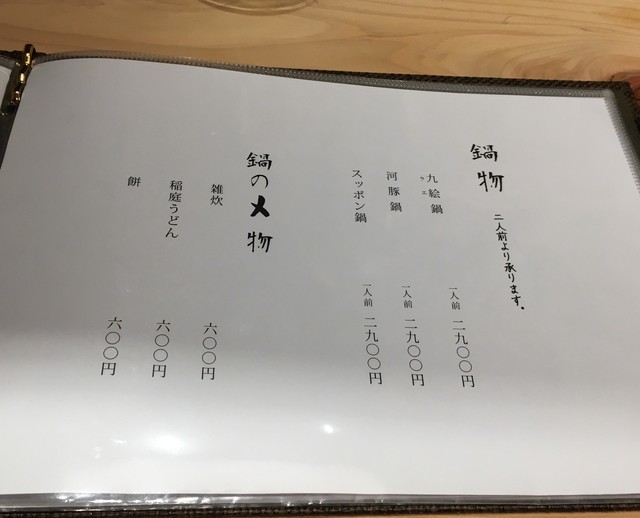 鍋物 二人前より承ります。
九絵鍋 一人前 二九〇〇円
クエ
河豚鍋 一人前 二九〇〇円
スッポン鍋 一人前 二九〇〇円
鍋の〆物
雑炊 六〇〇円
稲庭うどん 六〇〇円
餅 六〇〇円